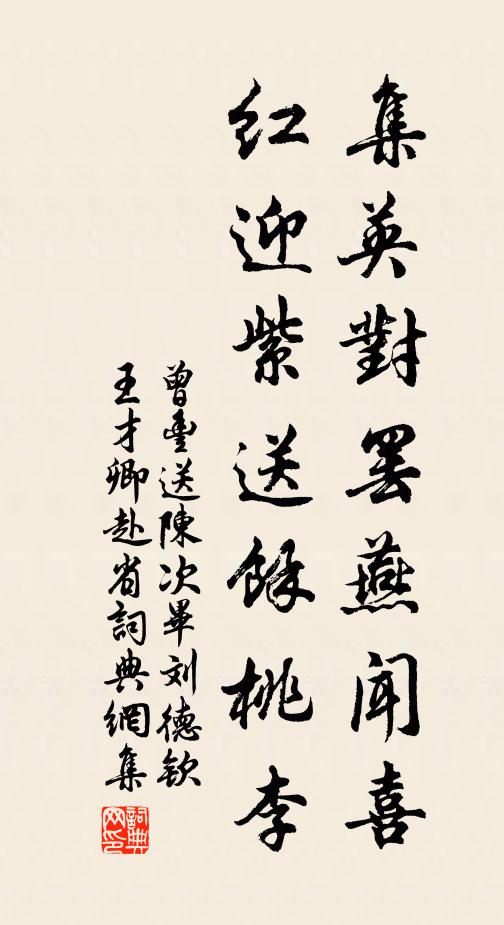 集英對罷燕闻喜
红迎紫送餘桃李
曾豐送陳次畢刘德欽
王才卿赴省詞典網集
詞典
网印